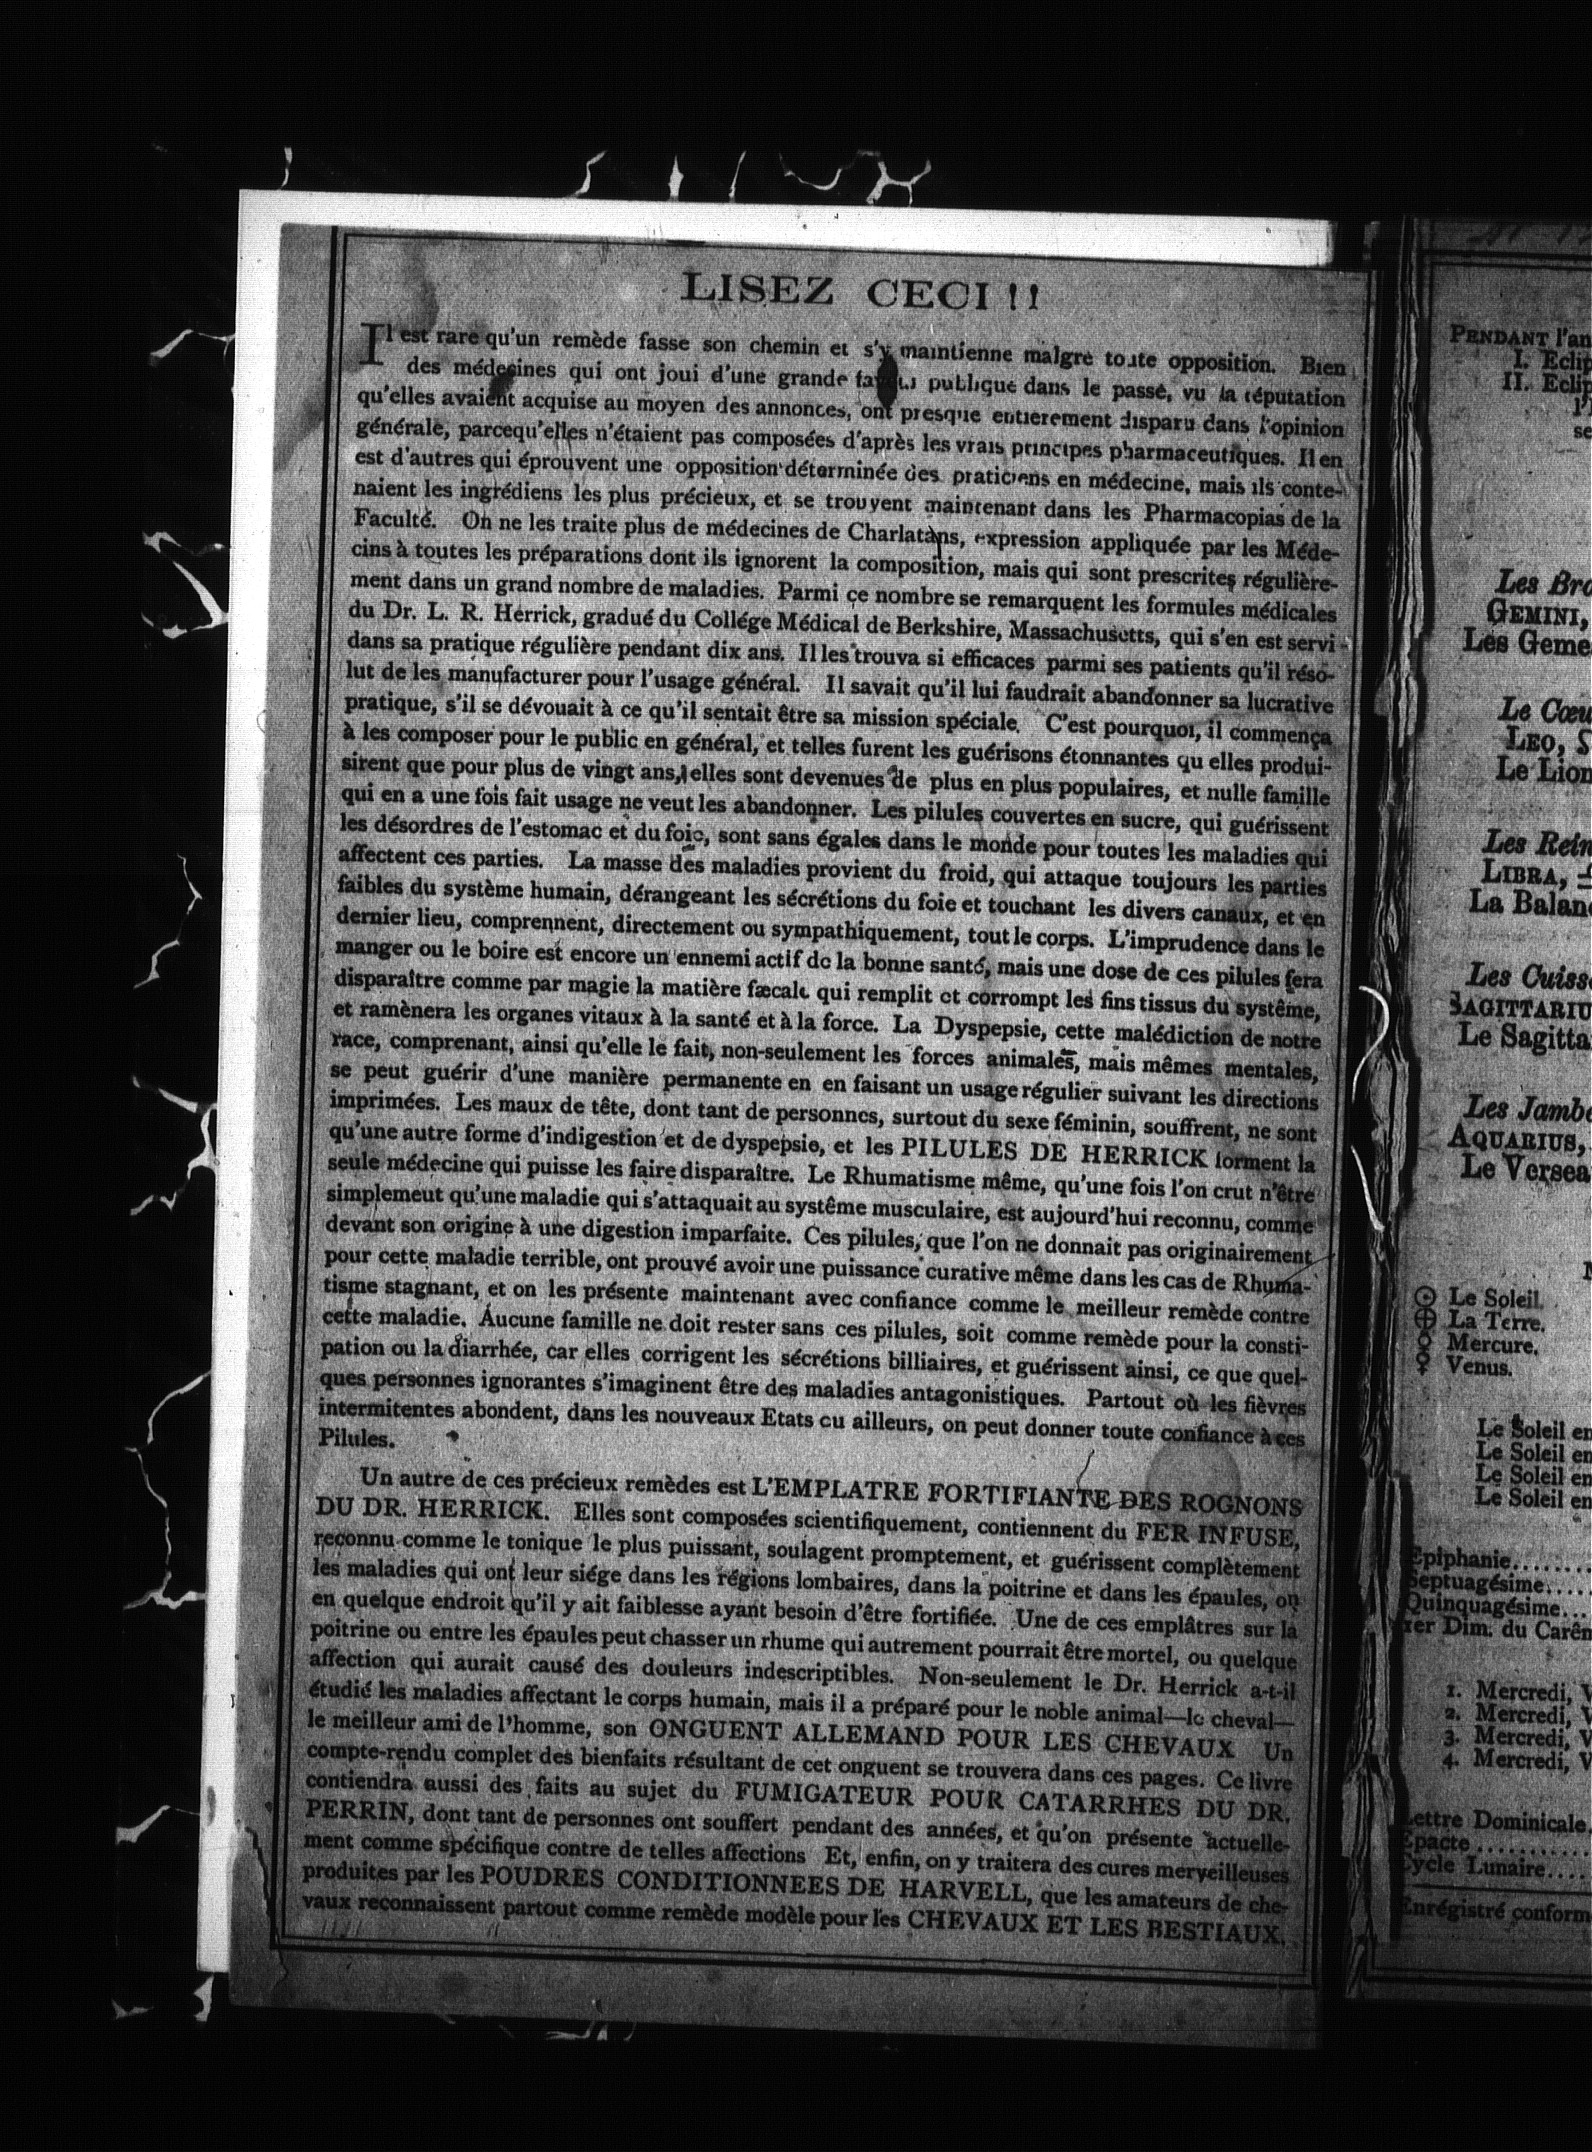 LISEZ CECI !!
Il est rare qu'un remède fasse son chemin et s'y maintienne malgré toute opposition. Bien
des médecines qui ont joui d'une grande faveur publique dans le passé, vu la réputation
qu'elles avaient acquise au moyen des annonces, ont presque entierement disparu dans l'opinion
générale, parcequ'elles n'étaient pas composées d'après les vrais principes pharmaceutiques. Il en
est d'autres qui éprouvent une opposition déterminée des praticiens en médecine, mais ils conte-
naient les ingrédiens les plus précieux, et se trouvent maintenant dans les Pharmacopias de la
Faculté. On ne les traite plus de médecines de Charlatans, expression appliquée par les Méde-
cins à toutes les préparations dont ils ignorent la composition, mais qui sont prescrites régulière-
ment dans un grand nombre de maladies. Parmi ce nombre se remarquent les formules médicales
du Dr. L. R. Herrick, gradué du Collége Médical de Berkshire, Massachusetts, qui s'en est servi
dans sa pratique régulière pendant dix ans. Il les trouva si efficaces parmi ses patients qu'il réso-
lut de les manufacturer pour l'usage général. Il savait qu'il lui faudrait abandonner sa lucrative
pratique, s'il se dévouait à ce qu'il sentait être sa mission spéciale. C'est pourquoi, il commença
à les composer pour le public en général, et telles furent les guérisons étonnantes qu elles produi-
sirent que pour plus de vingt ans, elles sont devenues de plus en plus populaires, et nulle famille
qui en a une fois fait usage ne veut les abandonner. Les pilules couvertes en sucre, qui guérissent
les désordres de l'estomac et du foie, sont sans égales dans le monde pour toutes les maladies qui
affectent ces parties. La masse des maladies provient du froid, qui attaque toujours les parties
faibles du système humain, dérangeant les sécrétions du foie et touchant les divers canaux, et en
dernier lieu, comprennent, directement ou sympathiquement, tout le corps. L'imprudence dans le
manger ou le boire est encore un ennemi actif de la bonne santé, mais une dose de ces pilules fera
disparaître comme par magie la matière fæcale qui remplit et corrompt les fins tissus du systême,
et ramènera les organes vitaux à la santé et à la force. La Dyspepsie, cette malédiction de notre
race, comprenant, ainsi qu'elle le fait, non-seulement les forces animales, mais mêmes mentales,
se peut guérir d'une manière permanente en en faisant un usage régulier suivant les directions
imprimées. Les maux de tête, dont tant de personnes, surtout du sexe féminin, souffrent, ne sont
qu'une autre forme d'indigestion et de dyspepsie, et les PILULES DE HERRICK forment la
seule médecine qui puisse les faire disparaître. Le Rhumatisme même, qu'une fois l'on crut n'être
simplemeut qu'une maladie qui s'attaquait au systême musculaire, est aujourd'hui reconnu, comme
devant son origine à une digestion imparfaite. Ces pilules, que l'on ne donnait pas originairement
pour cette maladie terrible, ont prouvé avoir une puissance curative même dans les cas de Rhuma-
tisme stagnant, et on les présente maintenant avec confiance comme le meilleur remède contre
cette maladie. Aucune famille ne doit rester sans ces pilules, soit comme remède pour la consti-
pation ou la diarrhée, car elles corrigent les sécrétions billiaires, et guérissent ainsi, ce que quel-
ques personnes ignorantes s'imaginent être des maladies antagonistiques. Partout où les fièvres
intermitentes abondent, dans les nouveaux Etats ou ailleurs, on peut donner toute confiance à ces
Pilules.
Un autre de ces précieux remèdes est L'EMPLATRE FORTIFIANTE DES ROGNONS
DU DR. HERRICK. Elles sont composées scientifiquement, contiennent du FER INFUSE,
reconnu comme le tonique le plus puissant, soulagent promptement, et guérissent complètement
les maladies qui ont leur siége dans les régions lombaires, dans la poitrine et dans les épaules, ou
en quelque endroit qu'il y ait faiblesse ayant besoin d'être fortifiée. Une de ces emplâtres sur la
poitrine ou entre les épaules peut chasser un rhume qui autrement pourrait être mortel, ou quelque
affection qui aurait causé des douleurs indescriptibles. Non-seulement le Dr. Herrick a-t-il
étudié les maladies affectant le corps humain, mais il a préparé pour le noble animal—le cheval—
le meilleur ami de l'homme, son ONGUENT ALLEMAND POUR LES CHEVAUX Un
compte-rendu complet des bienfaits résultant de cet onguent se trouvera dans ces pages. Ce livre
contiendra aussi des faits au sujet du FUMIGATEUR POUR CATARRHES DU DR.
PERRIN, dont tant de personnes ont souffert pendant des années, et qu'on présente actuelle-
ment comme spécifique contre de telles affections Et, enfin, on y traitera des cures merveilleuses
produites par les POUDRES CONDITIONNEES DE HARVELL, que les amateurs de che-
vaux reconnaissent partout comme remède modèle pour les CHEVAUX ET LES BESTIAUX.
PENDANT l'an
I. Eclip
II. Eclip
l'
se
Les Bra
GEMINI,
Les Geme
Le Cœu
LEO, S
Le Lion
Les Rein
LIBRA, ♎
La Balan
Les Cuiss
SAGITTARIU
Le Sagitta
Les Jambe
AQUARIUS,
Le Versea
☉ Le Soleil.
⊕ La Terre.
☿ Mercure.
♀ Venus.
Le Soleil en
Le Soleil en
Le Soleil en
Le Soleil en
Epiphanie........
Septuagésime.....
Quinquagésime...
1er Dim. du Carêm
1. Mercredi, V
2. Mercredi, V
3. Mercredi, V
4. Mercredi, V
Lettre Dominicale.
Epacte...........
Cycle Lunaire....
Enrégistré conform